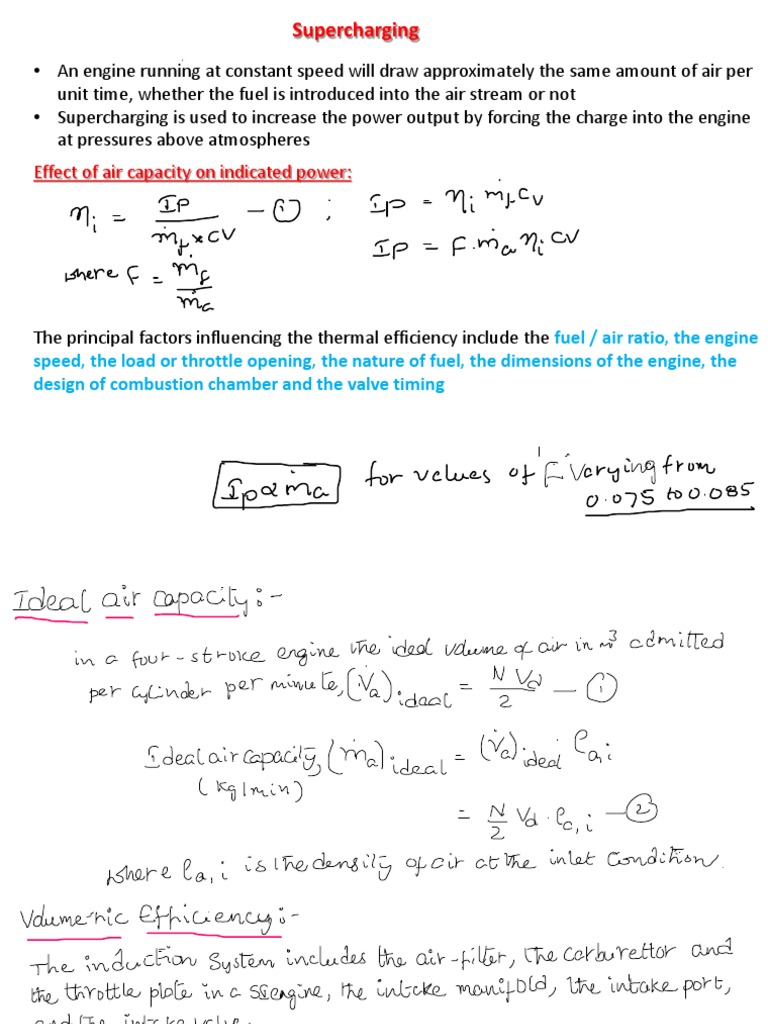 Supercharging
• An engine running at constant speed will draw approximately the same amount of air per
unit time, whether the fuel is introduced into the air stream or not
• Supercharging is used to increase the power output by forcing the charge into the engine
at pressures above atmospheres
Effect of air capacity on indicated power:
η_i = IP / (ṁ_f × CV) — ① ; IP = η_i ṁ_f CV
IP = F. ṁ_a η_i CV
where F = ṁ_f / ṁ_a
The principal factors influencing the thermal efficiency include the fuel / air ratio, the engine
speed, the load or throttle opening, the nature of fuel, the dimensions of the engine, the
design of combustion chamber and the valve timing
Ip α ṁ_a for values of 'F' varying from
0.075 to 0.085
Ideal air capacity:-
in a four-stroke engine the ideal volume of air in m³ admitted
per cylinder per minute, (V̇_a)_ideal = N V_d / 2 — ①
Ideal air capacity, (ṁ_a)_ideal = (V̇_a)_ideal ρ_a,i
(kg/min)
= N/2 V_d . ρ_a,i — ②
where ρ_a,i is the density of air at the inlet condition.
Volumetric Efficiency:-
The induction system includes the air-filter, the carburettor and
the throttle plate in a SI engine, the intake manifold, the intake port,
and the intake valve.